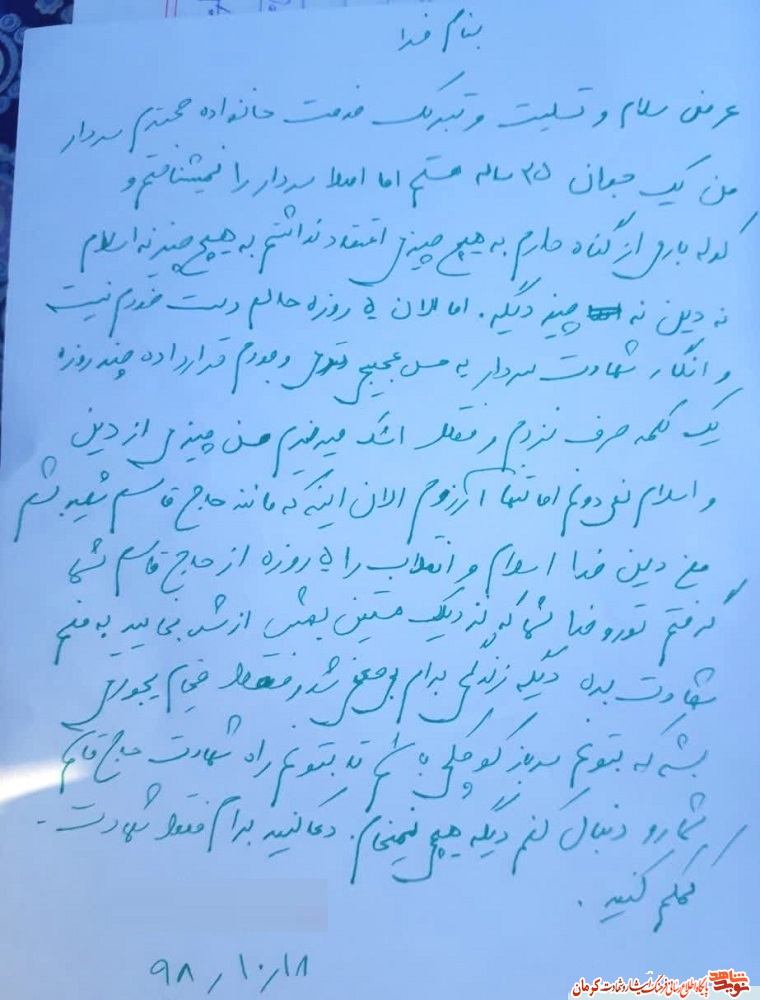 بنام خدا
عرض سلام و تسلیت و تبریک خدمت خانواده محترم سردار
من یک جوان ۳۵ ساله هستم اما اصلا سردار را نمیشناختم و
کوله باری از گناه دارم به هیچ چیزی اعتقاد نداشتم به هیچ چیز نه اسلام
نه دین نه چیز دیگه. اما الان ۵ روزه حالم دست خودم نیست
و انگار شهادت سردار یه حس عجیبی توی وجودم قرار داده چند روزه
یک کلمه حرف نزدم و فقط اشک میریزم من چیزی از دین
و اسلام نمی دونم اما تنها آرزوم الان اینه که مانند حاج قاسم شهید بشم
من دین خدا اسلام و انقلاب را ۵ روزه از حاج قاسم شما
گرفتم تورو خدا شما که نزدیک هستین بهش ازش بخواید به منم
شهادت بده دیگه زندگی برام بی معنی شده فقط میخام یجوری
بشه که بتونم سرباز کوچکی باشم که بتونم راه شهادت حاج قاسم
شما رو دنبال کنم دیگه هیچی نمیخام. دعا کنید برام فقط شهادت.
کمکم کنید.
۹۸/۱۰/۱۸
نوید شاهد
پایگاه اطلاع رسانی فرهنگ ایثار و شهادت کرمان